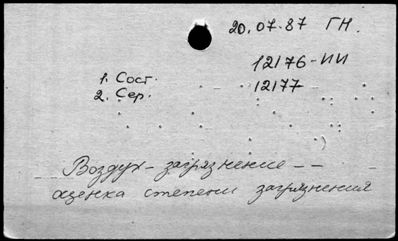 20.07.87 ГН.
12176-ИИ
1. Сост. 12177
2. Сер.
Воздух - загрязнение --
оценка степени загрязнения